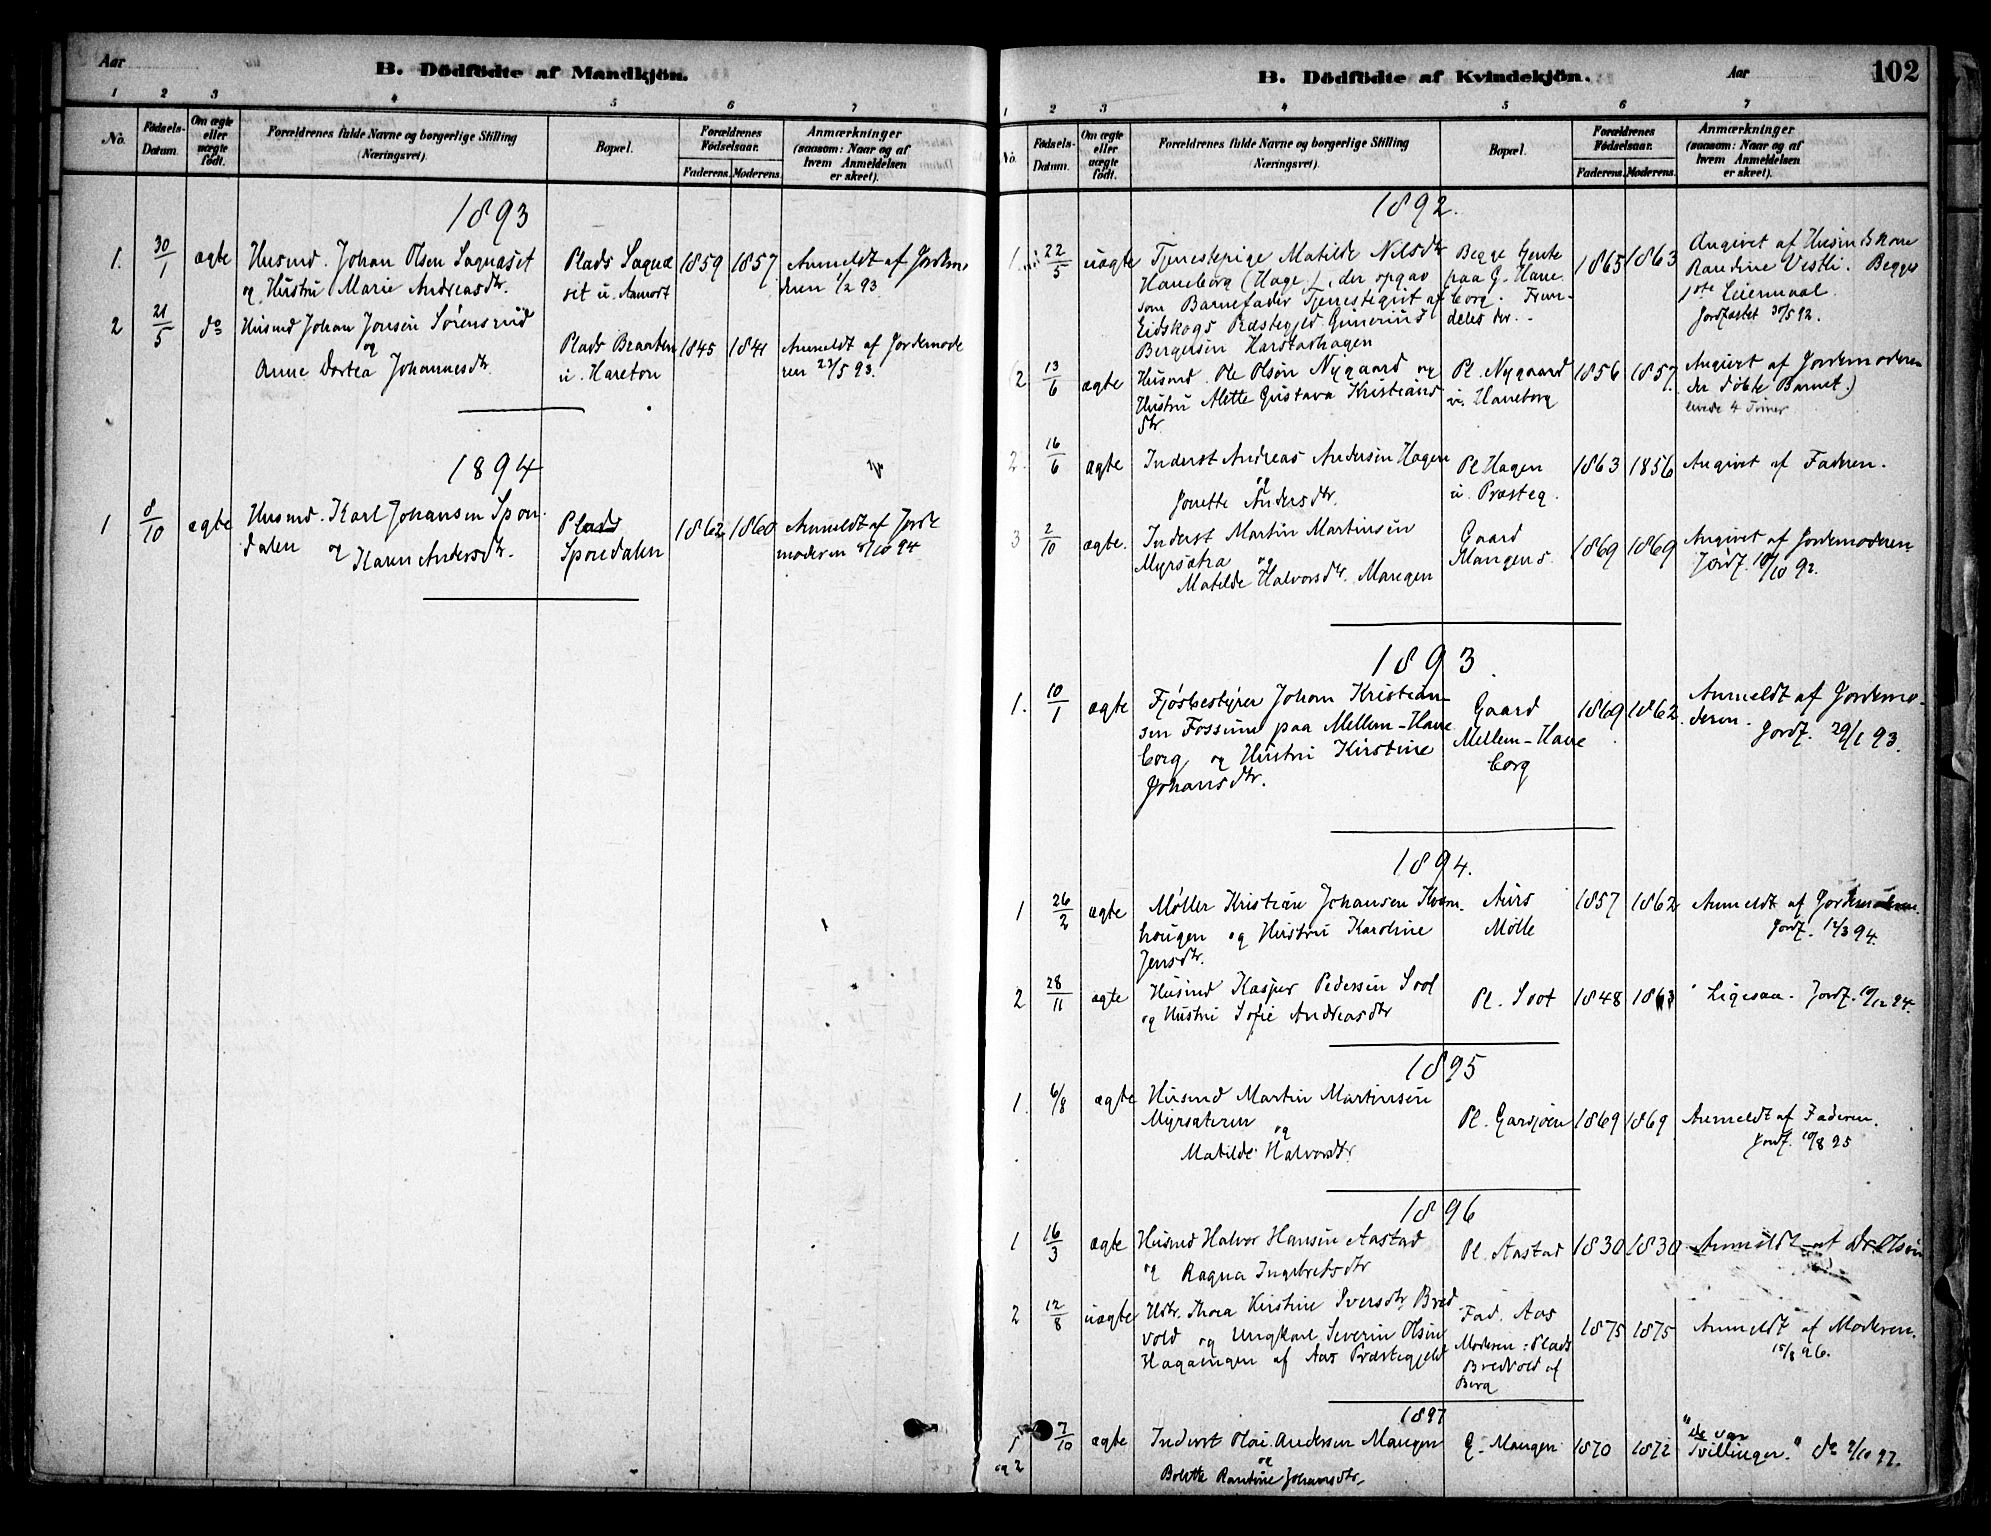 Aar
B. Dödfödte af Mandkjön.
1 2 3 4 5 6 7
No.
Födsels-
Datum.
Om ægte
eller
uægte
født.
Forældrenes fulde Navne og borgerlige Stilling
(Næringsvei).
Bopæl.
Forældrenes
Födselsaar.
Faderens. Moderens.
Anmærkninger
(saasom: Naar og af
hvem Anmeldelsen
er skeet).
1893
1. 30/1 ægte Husmd. Johan Olsen 1859 1857 Anmeldt af Jordemo
og Hustru Marie Andreasdtr. deren 1/2 93.
2 21/5 do Husmd Johan Jonsen Sørensrud
Plads Braaten 1845 1841 Anmeldt af Jordemode
og
Anne Dortea Johannesdtr. ren 23/5 93.
1894
1 8/10 ægte Husmd. Karl Johansen Spon- Plads 1862 1860 Anmeldt af Jorde
dalen og Karen Andersdtr. Spondalen moderen 8/10 94
B. Dödfödte af Kvindekjön.
Aar
102
1 2 3 4 5 6 7
No.
Födsels-
Datum.
Om ægte
eller
uægte
født.
Forældrenes fulde Navne og borgerlige Stilling
(Næringsvei).
Bopæl.
Forældrenes
Födselsaar.
Faderens. Moderens.
Anmærkninger
(saasom: Naar og af
hvem Anmeldelsen
er skeet).
1892.
1 22/5 uægte Tjenestepige Matilde Nilsdtr Begge tjente 1865 1863 Angivet af Husmdskone
Haneborg (Hage), der opgav paa G. Hane Randine Vestli. Begges
som Barnefader Tjenestegut af borg. Frem- 1ste Leiermaal.
Eidskogs Præstegjeld Gunerius deles der. Jordfæstet 30/5 92.
Bergersen Harstadhagen
2 13/6 ægte Husmd. Ole Olsen Nygaard og Pl. Nygaard 1856 1857. Angivet af Jordemoderen
Hustru Alette Gustava Kristians u. Haneborg der døbte Barnet.)
dtr. levede 4 Timer
2. 16/6 ægte Inderst Andreas Andersen Hagen Pl Hagen 1863 1856 Angivet af Faderen.
og
Jonette Andersdtr. u. Præsteg.
3 2/10 ægte. Inderst Martin Martinsen Gaard 1869 1869 Angivet af Jordemoderen
Myrsætra og Mangens Jordf. 10/10 92.
Matilde Halvorsdtr. Mangen
1893.
1. 10/1 ægte Fjøsbestyrer Johan Kristian- Gaard 1869 1862. Anmeldt af Jordemo-
sen Fossum paa Mellem-Hane Mellem-Hane deren. Jordf. 29/1 93.
borg og Hustru Kirstine borg
Johansdtr.
1894.
1 26/2 ægte Møller Kristian Johansen Kvern- Aurs 1857 1862 Anmeldt af Jordemoderen.
haugen og Hustru Karoline Mølle Jordf. 12/3 94.
Jensdtr.
2 28/11 ægte Husmd Kasper Pedersen Soot Pl. Soot 1848 1863 Ligesaa. Jordf. 10/12 94.
og Hustru Sofie Andreasdtr
1895
1. 6/8 ægte Husmd Martin Martinsen
Myrsæteren Pl. Garsjøen 1869 1869. Anmeldt af Faderen.
og Jordf. 10/8 95
Matilde Halvorsdtr.
1896
1 16/3 ægte Husmd Halvor Hansen Aastad Pl. Aastad 1830 1830 Anmeldt af Dr. Olsen
og Ragna Ingebretsdtr
2 12/8 uægte Ustr. Thora Kirstine Iversdtr. Bred- Fad. Aas 1875 1875 Anmeldt af Moderen.
vold og Ungkarl Severin Olsen Moderen: Plads 15/8 96.
af Aas Præstegjeld Bredvold af
Berg
1897
1 7/10 ægte Inderst Andersen Mangen G. Mangen 1870 1872 "de var
og 2 og Tvillinger" do 9/10 97.
Bolette Randine Johansdtr.